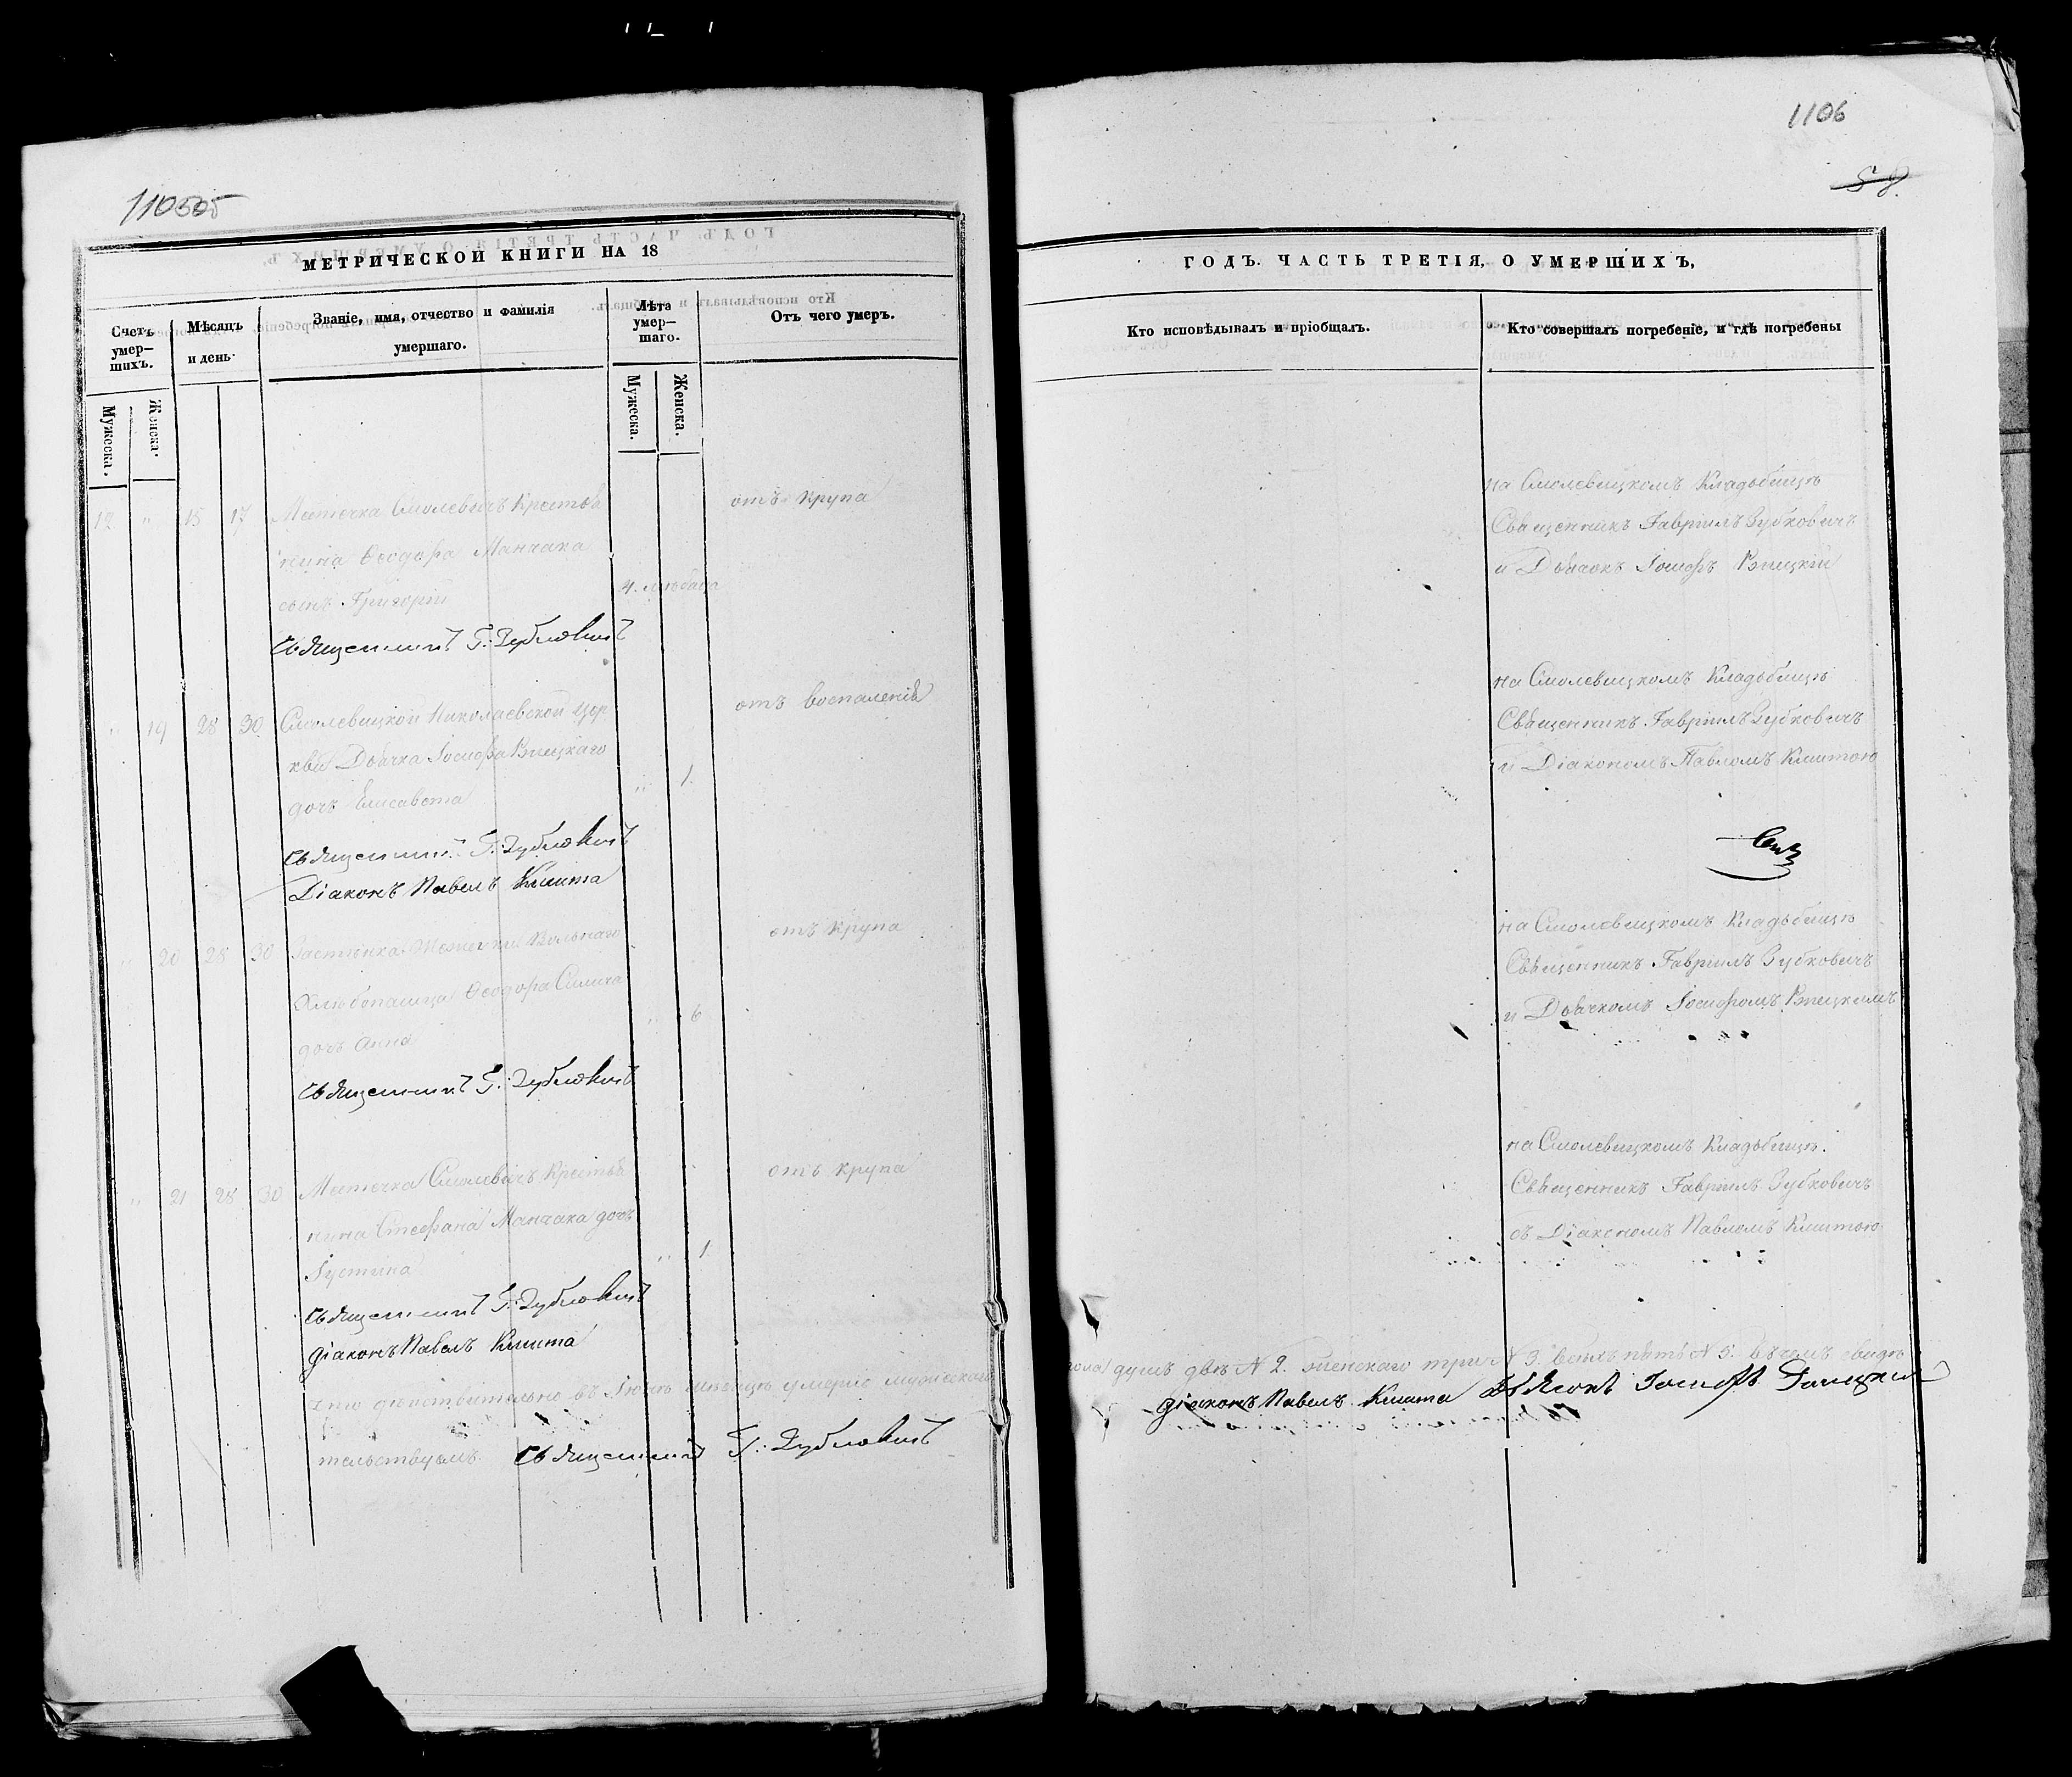 110505
МЕТРИЧЕСКОЙ КНИГИ НА 18
Счетъ умер-шихъ.
Мѣсяцъ и день.
Званіе, имя, отчество и фамилія умершаго.
Лѣта умер-шаго.
Отъ чего умеръ.
Мужеска.
Женска.
Мужеска.
Женска.
12 " 15 17 Мѣстечка Смолевичъ Крестья отъ крупа
нина Ѳеодора Манчака
сынъ Григорій 4.
Священникъ Г. Зубковичъ
" 19 28 30 Смолевицкой Николаевской Цер отъ воспаленія
кви Дьячка Іосифа Рѣпецкаго
дочь Елисавета " 1.
Священникъ Г. Зубковичъ
Діаконъ Павелъ Кмита
" 20 28 30 Застѣнка Вольнаго отъ крупа
Хлѣбопашца Ѳеодора
дочь Анна " 6
Священникъ Г. Зубковичъ
" 21 28 30 Мѣстечка Смолевичъ Крестья отъ крупа
нина Стефана Манчака дочь
Іустина " 1.
Священникъ Г. Зубковичъ
Діаконъ Павелъ Кмита
Что дѣйствительно въ Іюнѣ мѣсяцѣ умерло мужескаго
тельствуемъ. Священникъ Г. Зубковичъ
1106
58.
ГОДЪ. ЧАСТЬ ТРЕТІЯ, О УМЕРШИХЪ,
Кто исповѣдывалъ и пріобщалъ.
Кто совершалъ погребеніе, и гдѣ погребены
на Смолевицкомъ Кладбищѣ
Священникъ Гавріилъ Зубковичъ
и Дьячокъ Іосифъ Рѣпецкій
на Смолевицкомъ Кладбищѣ
Священникъ Гавріилъ Зубковичъ
и Діакономъ Павломъ Кмитою
на Смолевицкомъ Кладбищѣ
Священникъ Гавріилъ Зубковичъ
и Дьячкомъ Іосифомъ Рѣпецкимъ
на Смолевицкомъ Кладбищѣ.
Священникъ Гавріилъ Зубковичъ
съ Діакономъ Павломъ Кмитою
пола душъ двѣ № 2. женскаго три № 3. всѣхъ пять № 5. въ чемъ свидѣ
Діаконъ Павелъ Кмита Дьячокъ Іосифъ Рѣпецкій